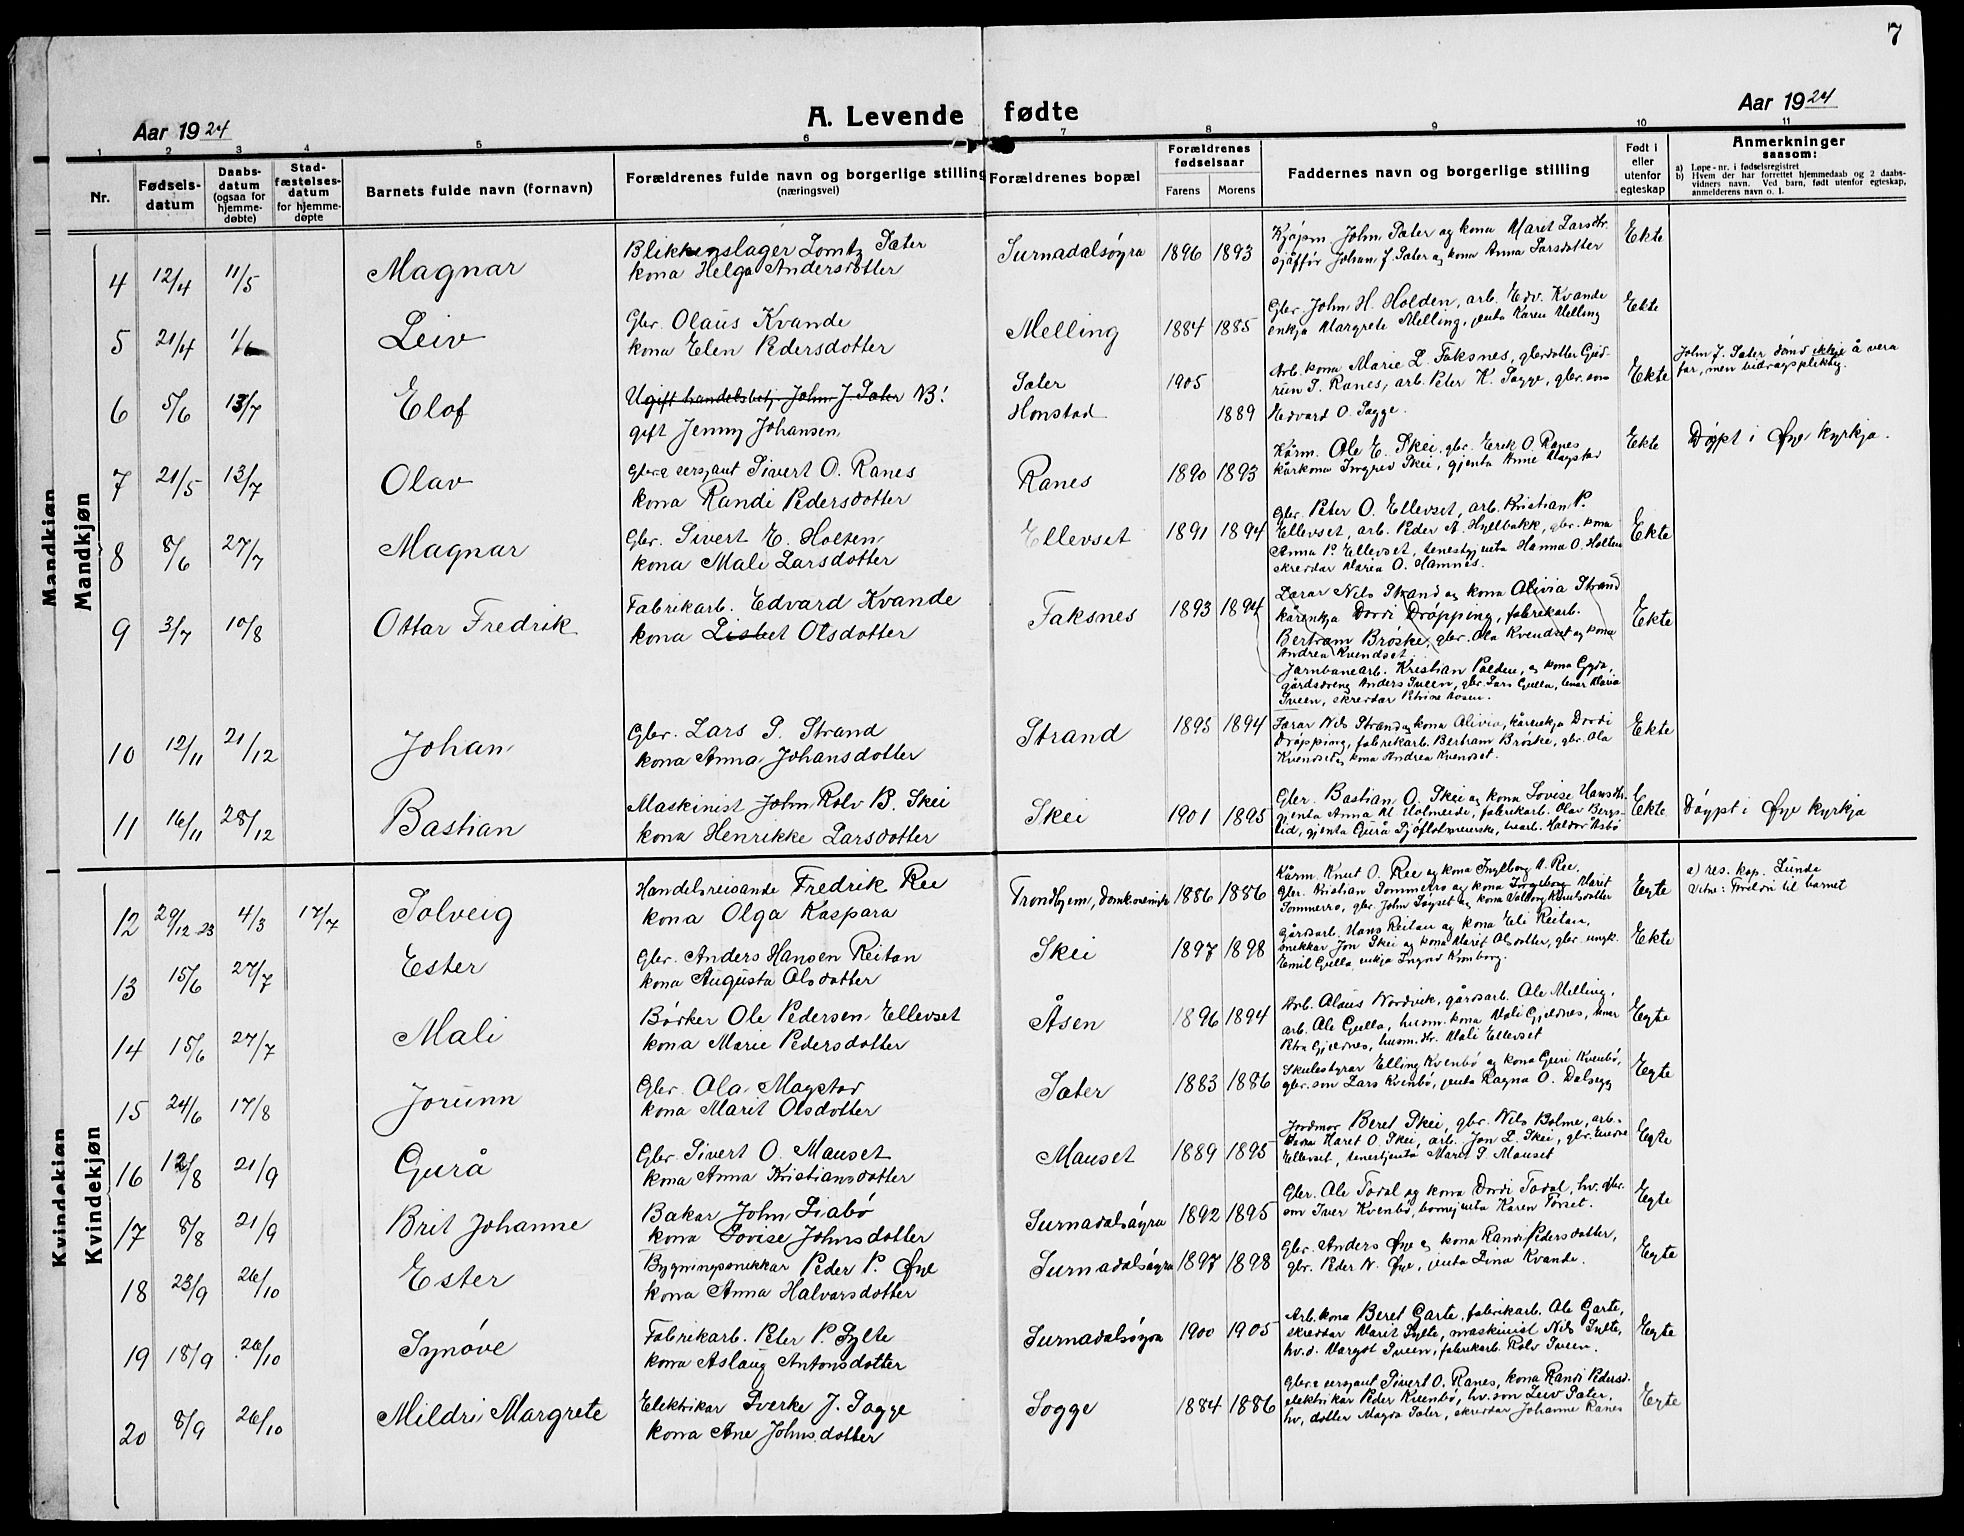 7
Aar 1924
A. Levende fødte
Aar 1924
1 2 3 4 5 6 7 8 9 10 11
Nr.
Fødsels-
datum
Daabs-
datum
(ogsaa for
hjemme-
døbte)
Stad-
fæstelses-
datum
for hjemme-
døpte
Barnets fulde navn (fornavn)
Forældrenes fulde navn og borgerlige stilling
(næringsvei)
Forældrenes bopæl
Forældrenes
fødselsaar
Farens Morens
Faddernes navn og borgerlige stilling
Født i
eller
utenfor
egteskap
Anmerkninger
saasom:
a) Løpe-nr. i fødselsregistret
b) Hvem der har forrettet hjemmedaab og 2 daabs-
vidners navn. Ved barn, født utenfor egteskap,
anmelderens navn o. l.
Mandkjøn
Mandkjøn
4 12/4 11/5 Magnar
Blikkenslager Lorntz Sæter
kona Helga Andersdotter
Surnadalsøyra 1896 1893
Kjøpm. John Sæter og kona Marit Larsdtr.
sjåffør Johan J. Sæter og kona Anna Larsdotter
Ekte
5 21/4 1/6 Leiv
Gbr. Olaus Kvande
kona Elen Pedersdotter
Melling 1884 1885
Gbr. John H. Holden, arb. Edv. Kvande
enkja Margrete Melling, jenta Karen Melling
Ekte
6 5/6 13/7 Elof
Ugift handelsbetj. John J. Sæter NB!
gift Jenny Johansen
Sæter 1905
Honstad 1889
Arb. kona Marie L. Faksnes, gbrdotter Gud-
run S. Ranes, arb. Peter K. Sogge, gbr. son
Edvard O. Sogge.
Ekte
John J. Sæter dømd ikkje å vera
far, men bidragspliktig.
7 21/5 13/7 Olav
Gbr. & sersjant Sivert O. Ranes
kona Randi Pedersdotter
Ranes 1890 1893
Kårm. Ole E. Skei, gbr. Erik O. Ranes
kårkona Ingrid Skei, gjenta Anne Magstad
Ekte
Døypt i Øye kyrkja.
8 8/6 27/7 Magnar
Gbr. Sivert E. Holten
kona Mali Larsdotter
Ellevset 1891 1894
Gbr. Peter O. Ellevset, arb. Kristian P.
Ellevset, arb. Peder A. Hyllbakk, gbr. kona
Anna P. Ellevset, tenestgjenta Hanna O. Holten
skreddar Maren O. Hamnes.
Ekte
9 3/7 10/8 Ottar Fredrik
Fabrikarb. Edvard Kvande
kona Lisbet Olsdotter
Faksnes 1893 1894
Lærar Nils Strand og kona Olivia Strand
kårenkja Dordi Drøpping, fabrikarb.
Bertram Brøske, gbr. Ola Kvendset og kona
Andrea Kvendset.
Jarnbanearb. Kristian Polden, og kona Gyda,
gårdsdreng Anders Sveen, gbr. Lars Gulla, tenar Maria
Sveen, skreddar Petrine Mosen.
Ekte
10 12/11 21/12 Johan
Gbr. Lars P. Strand
kona Anna Johansdotter
Strand 1895 1894
Lærar Nils Strand og kona Olivia, kårenkja Dordi
Drøpping, fabrikarb. Bertram Brøske, gbr. Ola
Kvendset og kona Andrea Kvendset.
Ekte
11 16/11 28/12 Bastian
Maskinist John Rolv B. Skei
kona Henrikke Larsdotter
Skei 1901 1895
Gbr. Bastian O. Skei og kona Lovise Hansdtr.
gjenta Anna M. Holmeide, fabrikarb. Olav Bergs-
lid, gjenta Gurå Sjøflot, Haldor Åsbø
Ekte
Døypt i Øye kyrkja
Kvindekjøn
Kvindekjøn
12 29/12 23 4/3 17/7 Solveig
Handelsreisande Fredrik Ree
kona Olga Kaspara
Trondhjem, domk.sreinsk 1886 1886
Kårm. Knut O. Ree og kona Ingeborg A. Ree.
Gbr. Kristian Sommerro og kona Ingeborg, Marit
Sommerro, gbr. John Sogset og kona Valborg Knutsdotter
Egte
a) res. kap. Lunde
Vitne: Foreldri til barnet
13 15/6 27/7 Ester
Gbr. Anders Hansen Reitan
kona Augusta Olsdotter
Skei 1897 1898
Gårdsarb. Hans Reitan og kona Eli Reitan,
snikkar Jon Skei og kona Marit Olsdotter, gbr. ungk.
Emil Gulla, enkja Ingrid Kinborg.
Ekte
14 15/6 27/7 Mali
Bøkker Ole Pedersen Ellevset
kona Marie Pedersdotter
Åsen 1896 1894
Arb. Olaus Nordvik, gårdsarb. Ole Melling,
arb. Ole Gulla, husm. kona Mali Gjeldnes, tenar
Petra Gjeldnes, husm. dtr. Mali Ellevset
Egte
15 24/6 17/8 Jorunn
Gbr. Ola Magstad
kona Marit Olsdotter
Sæter 1883 1886
Skulestyrar Elling Kvenbø og kona Guri Kvenbø,
gbr. son Lars Kvenbø, jenta Ragna O. Dalsegg
Egte
16 12/8 21/9 Gurå
Gbr. Sivert O. Mauset
kona Anna Kristiansdotter
Mauset 1889 1895
Jordmor Beret Skei, gbr. Nils Bolme, arb.-
kona Maret O. Skei, arb. Jon L. Skei, gbr.
Ellevset, tenestjenta Marit S. Mauset
Egte
17 8/8 21/9 Brit Johanne
Bakar John Siabø
kona Lovise Johnsdotter
Surnadalsøyra 1892 1895
Gbr. Ole Todal og kona Dordi Todal, hv. gbr.
son Iver Kvenbø, barnejenta Karen Torset.
Egte
18 23/9 26/10 Ester
Bygningssnikkar Peder P. Øye
kona Anna Halvarsdotter
Surnadalsøyra 1897 1898
Gbr. Anders Øye og kona Randi Pedersdotter,
gbr. Peder N. Øye, jenta Lina Kvande.
Egte
19 18/9 26/10 Synøve
Fabrikarb. Peter P. Sylte
kona Aslaug Antonsdotter
Surnadalsøyra 1900 1905
Arb. kona Beret Garte, fabrikarb. Ole Garte,
skreddar Marit Sylte, maskinist Nils Sylte,
hv.d. Margot Sveen, fabrikarb. Rolv Sveen.
Egte
20 8/9 26/10 Mildri Margrete
Elektrikar Sverke J. Sogge
kona Ane Johnsdotter
Sogge 1884 1886
Gbr. & sersjant Sivert O. Ranes, kona Randi Pedersd.
elektrikar Peder Kvenbø, hv. son Leiv Sæter,
hv. dotter Magda Sæter, skreddar Johanne Ranes
Egte